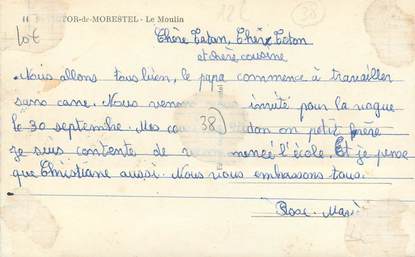 VICTOR-de-MORESTEL - Le Moulin
lot
38
Chère Taton, Chère Tonton
et chère cousine
Nous allons tous bien, le papa commence à travailler
sans cane. Nous invité pour la vogue
le 30 septembre. Mes on petit frère
je suis contente de l'école. Et je pense
que Christiane aussi. Nous vous embrassons tous.
Rose-Marie
38